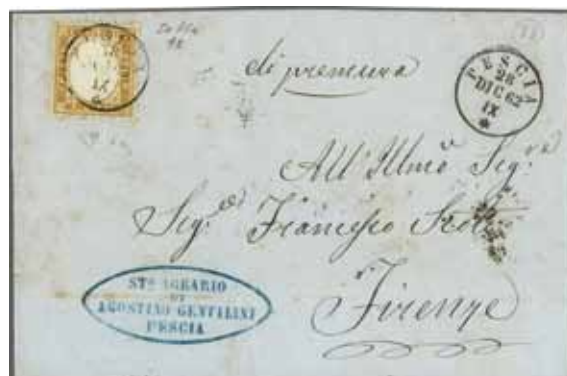 di premura
PESCIA
28
DIC 62
IX
All' Illmo Sigr.
Sigr. Francesco
Firenze
STO AGRARIO
DI
AGOSTINO GENTILINI
PESCIA